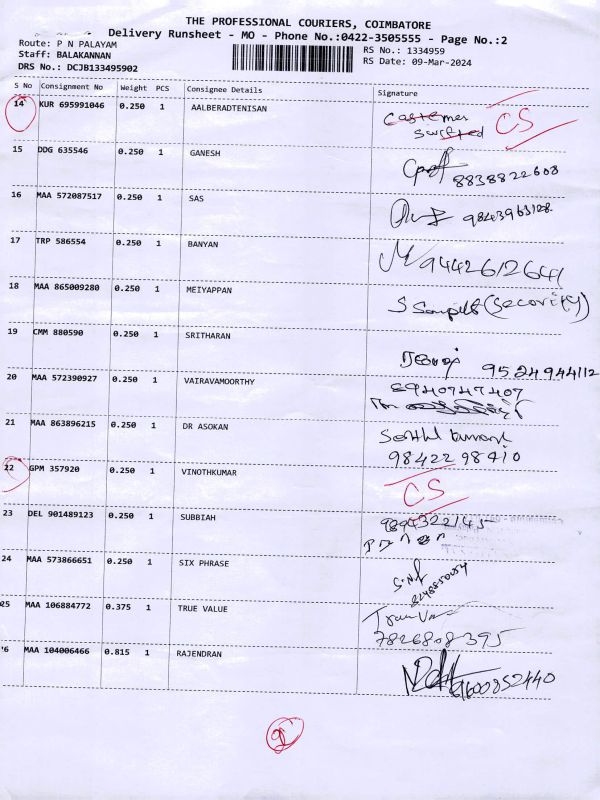 THE PROFESSIONAL COURIERS, COIMBATORE
Delivery Runsheet - MO - Phone No.:0422-3505555 - Page No.:2
Route: P N PALAYAM
Staff: BALAKANNAN
DRS No.: DCJB133495902
RS No.: 1334959
RS Date: 09-Mar-2024
S No Consignment No Weight PCS Consignee Details Signature
14 KUR 695991046 0.250 1 AALBERADTENISAN
CS
15 DDG 635546 0.250 1 GANESH
8838822608
16 MAA 572087517 0.250 1 SAS
17 TRP 586554 0.250 1 BANYAN
9442612641
18 MAA 865009280 0.250 1 MEIYAPPAN
(Security)
19 CMM 880590 0.250 1 SRITHARAN
9524944112
20 MAA 572390927 0.250 1 VAIRAVAMOORTHY
21 MAA 863896215 0.250 1 DR ASOKAN
98422 98410
22 GPM 357920 0.250 1 VINOTHKUMAR
CS
23 DEL 901489123 0.250 1 SUBBIAH
24 MAA 573866651 0.250 1 SIX PHRASE
25 MAA 106884772 0.375 1 TRUE VALUE
7826808395
26 MAA 104006466 0.815 1 RAJENDRAN
9600852440